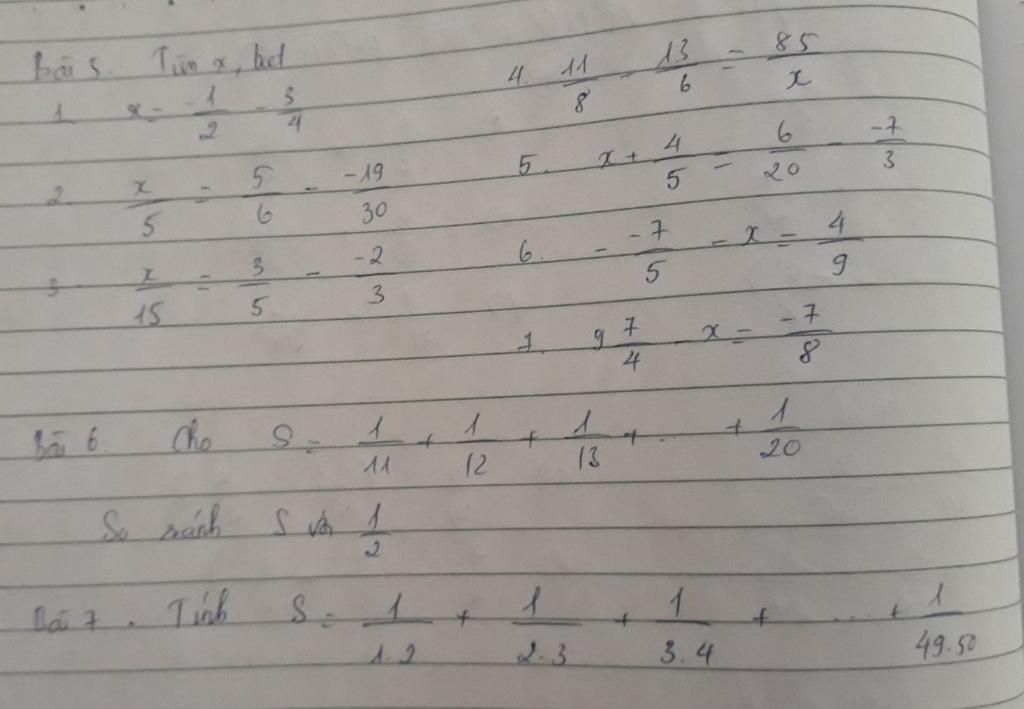 Bài 5. Tìm x, biết
1. x = -1/2 - 3/4
2. x/5 = 5/6 - -19/30
3. x/15 = 3/5 - -2/3
4. 11/8 - 13/6 = 85/x
5. x + 4/5 = 6/20 - -7/3
6. - -7/5 - x = 4/9
7. 9 7/4 - x = -7/8
Bài 6. Cho S = 1/11 + 1/12 + 1/13 + .... + 1/20
So sánh S và 1/2
Bài 7. Tính S = 1/1.2 + 1/2.3 + 1/3.4 + .... + 1/49.50